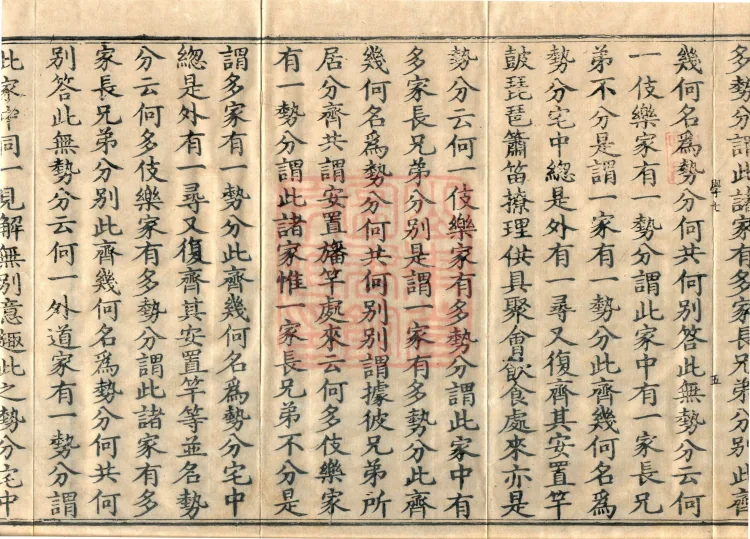 多勢分謂此諸家有多家長兄弟分別此齊
幾何名為勢分何共何別答此無勢分云何
學七
五
一伎樂家有一勢分謂此家中有一家長兄
弟不分是謂一家有一勢分此齊幾何名為
勢分宅中緫是外有一尋又復齊其安置竿
皷琵琶簫笛撩理供具聚會飲食處來亦是
勢分云何一伎樂家有多勢分謂此家中有
多家長兄弟分別是謂一家有多勢分此齊
幾何名爲勢分何共何別別謂據彼兄弟所
居分齊共謂安置旛竿處來云何多伎樂家
有一勢分謂此諸家惟一家長兄弟不分是
謂多家有一勢分此齊幾何名爲勢分宅中
緫是外有一尋又復齊其安置竿等並名勢
分云何多伎樂家有多勢分謂此諸家有多
家長兄弟分別此齊幾何名爲勢分何共何
別答此無勢分云何一外道家有一勢分謂
此家中同一見解無別意趣此之勢分宅中